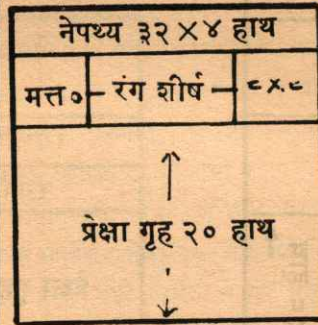 नेपथ्य ३२ × ४ हाथ
मत्त० - रंग शीर्ष - ८×८
प्रेक्षा गृह २० हाथ